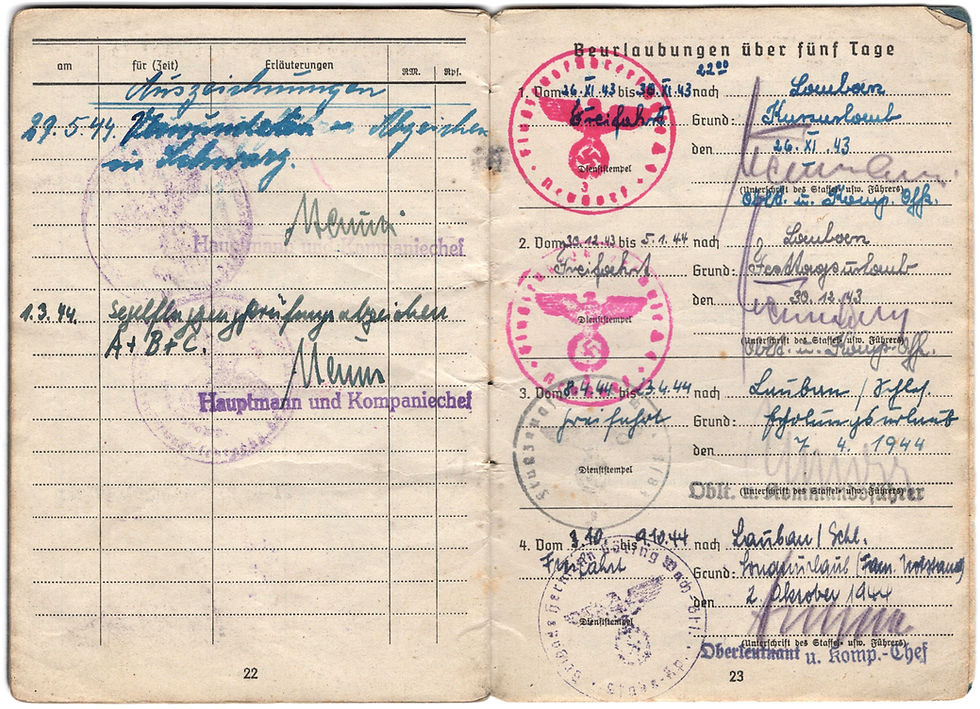 am für (Zeit) Erläuterungen RM. Rpf.
Auszeichnungen
29.5.44 Verwundeten - Abzeichen
in Schwarz.
Hauptmann und Kompaniechef
1.3.44. Segelflugzeugprüfungsabzeichen
A+B+C.
Hauptmann und Kompaniechef
22
Beurlaubungen über fünf Tage
22⁰⁰
1. Vom 26.XI.43 bis 30.XI.43 nach Lauban
Freifahrt Grund: Kurzurlaub
Dienststempel den 26.XI.43
(Unterschrift des Staffel- usw. Führers)
Oblt. u. Komp. Offz.
2. Vom 30.12.43 bis 5.1.44 nach Lauban
Freifahrt Grund: Festtagsurlaub
Dienststempel den 30.12.43
(Unterschrift des Staffel- usw. Führers)
Oblt. u. Komp.-Offz.
3. Vom 8.4.44 bis 23.4.44 nach Lauban / Schles.
Freifahrt Grund: Erholungsurlaub
den 7. 4. 1944
Dienststempel
Oblt. u. Kommandoführer
(Unterschrift des Staffel- usw. Führers)
4. Vom 3.10. bis 9.10.44 nach Lauban / Schl.
Freifahrt Grund: Sonderurlaub (Fam. Notstand)
den 2. Oktober 1944
Dienststempel
(Unterschrift des Staffel- usw. Führers)
Oberleutnant u. Komp.-Chef
23